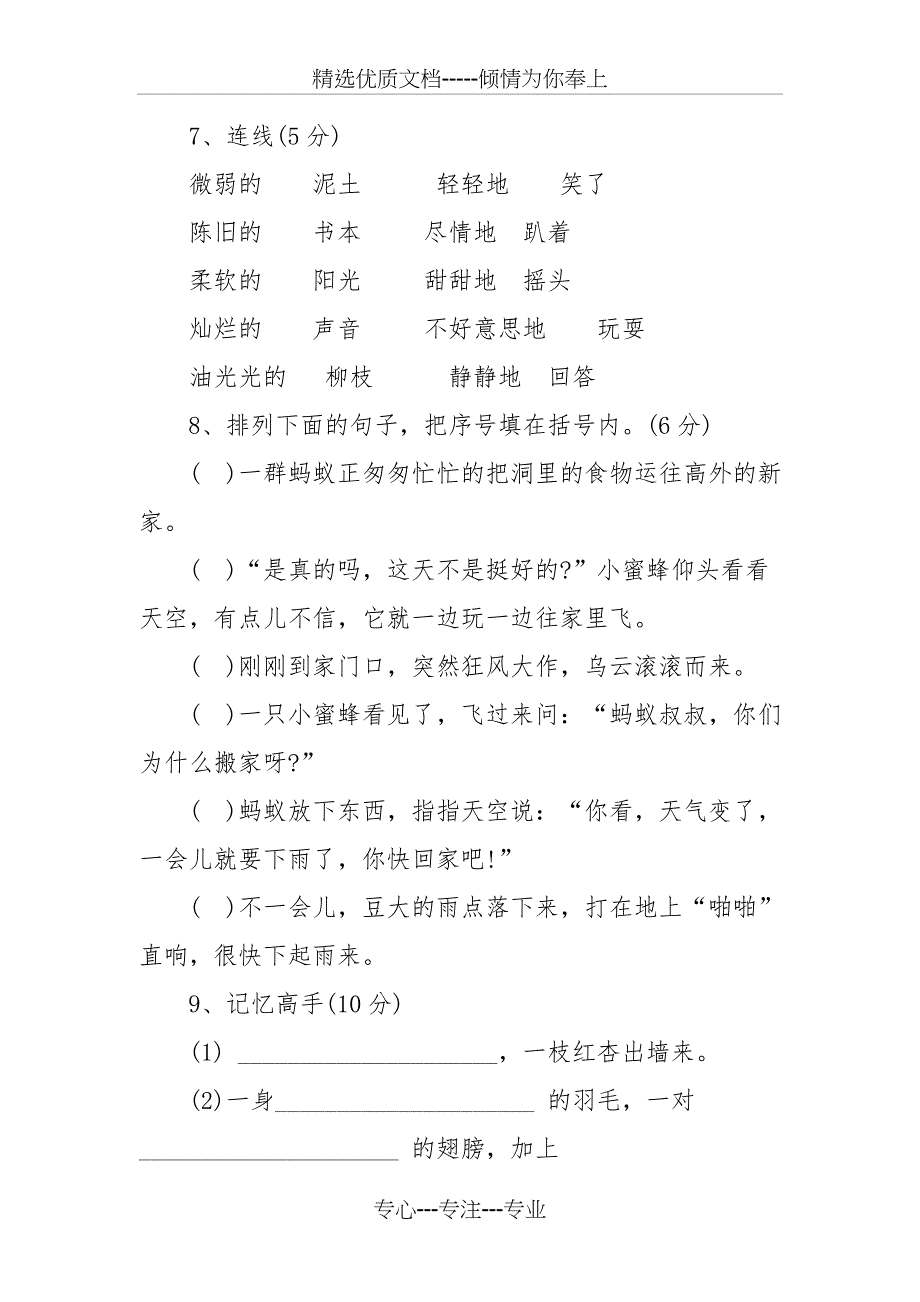 精选优质文档-----倾情为你奉上
7、连线(5分)
微弱的 泥土 轻轻地 笑了
陈旧的 书本 尽情地 趴着
柔软的 阳光 甜甜地 摇头
灿烂的 声音 不好意思地 玩耍
油光光的 柳枝 静静地 回答
8、排列下面的句子，把序号填在括号内。(6分)
( )一群蚂蚁正匆匆忙忙的把洞里的食物运往高外的新
家。
( )“是真的吗，这天不是挺好的?”小蜜蜂仰头看看
天空，有点儿不信，它就一边玩一边往家里飞。
( )刚刚到家门口，突然狂风大作，乌云滚滚而来。
( )一只小蜜蜂看见了，飞过来问：“蚂蚁叔叔，你们
为什么搬家呀?”
( )蚂蚁放下东西，指指天空说：“你看，天气变了，
一会儿就要下雨了，你快回家吧!”
( )不一会儿，豆大的雨点落下来，打在地上“啪啪”
直响，很快下起雨来。
9、记忆高手(10分)
(1) _____________________，一枝红杏出墙来。
(2)一身_____________________ 的羽毛，一对
_____________________ 的翅膀，加上
专心---专注---专业